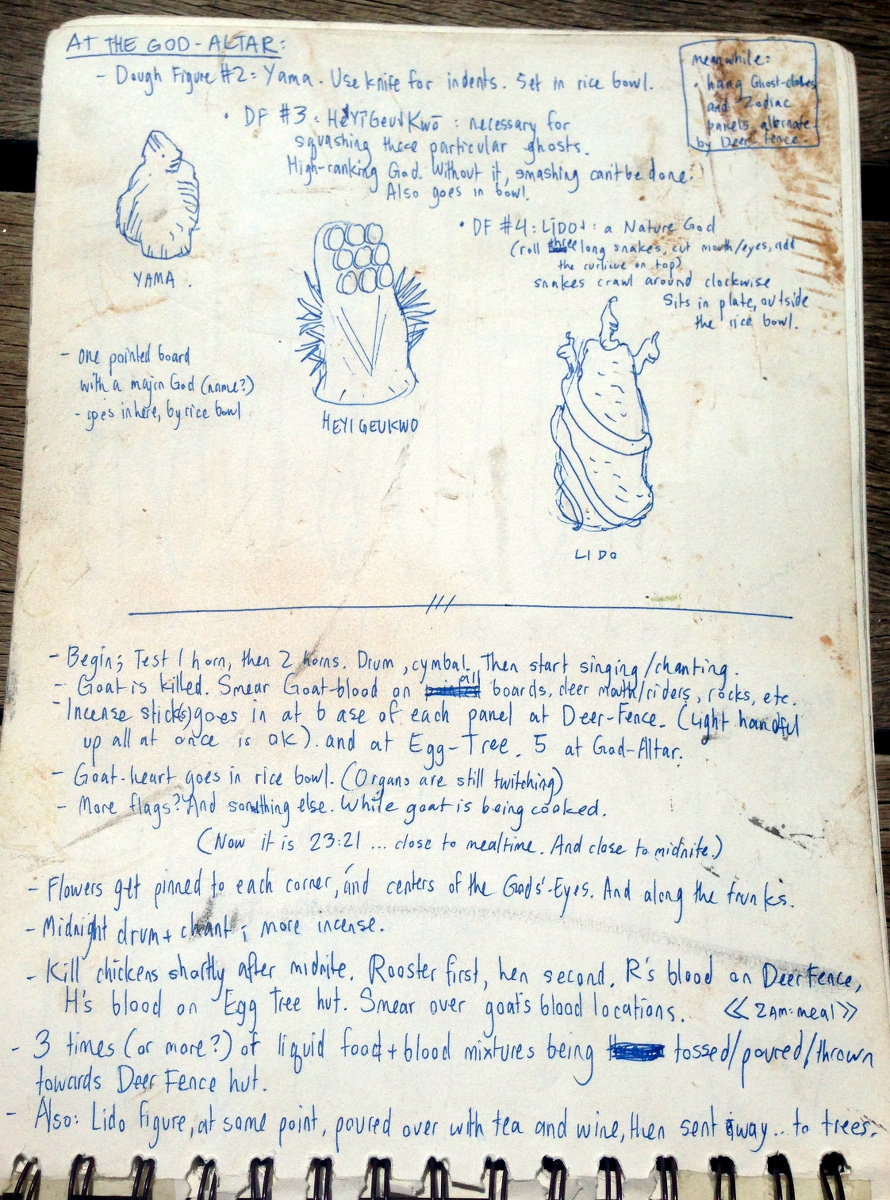 AT THE GOD-ALTAR:
- Dough Figure #2: Yama. Use knife for indents. Set in rice bowl.
meanwhile:
• hang Ghost-clothes
and Zodiac
panels, alternate
by Deer-fence.
• DF #3: : necessary for
squashing these particular ghosts.
High-ranking God. Without it, smashing can't be done.
Also goes in bowl.
• DF #4: : a Nature God
(roll three long snakes, cut mouth/eyes, add
the curlicue on top)
snakes crawl around clockwise
Sits in plate, outside
the rice bowl.
YAMA.
- one painted board
with a major God (name?)
- goes in here, by rice bowl
HEYI GEUKWO
LIDO
///
- Begin; Test 1 horn, then 2 horns. Drum, cymbal. Then start singing/chanting.
- Goat is killed. Smear Goat-blood on all boards, deer mouth/riders, rocks, etc.
- Incense stick(s) goes in at base of each panel at Deer-Fence. (Light handful
up all at once is OK). and at Egg-Tree. 5 at God-Altar.
- Goat-heart goes in rice bowl. (Organs are still twitching)
- More flags? And something else. While goat is being cooked.
(Now it is 23:21 ... close to mealtime. And close to midnite.)
- Flowers get pinned to each corner, and centers of the Gods'-Eyes. And along the trunks.
- Midnight drum + chant; more incense.
- Kill chickens shortly after midnite. Rooster first, hen second. R's blood on Deer Fence,
H's blood on Egg Tree hut. Smear over goat's blood locations. << 2AM: meal >>
- 3 times (or more?) of liquid food + blood mixtures being tossed/poured/thrown
towards Deer Fence hut.
- Also: Lido figure, at some point, poured over with tea and wine, then sent away.. to trees.